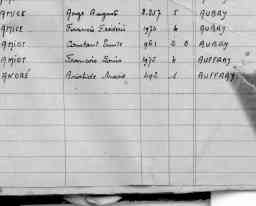 AMICE Ange August 2.257 5 AUBRY
AMICE Francis Frédéri 1974 6 AUBRY
AMIOT Constant Emile 961 2 B AUBRY
AMIOT Francois Louis 1475 6 AUFFRAY
ANDRÉ Aristide Marie 492 AUFFRAY